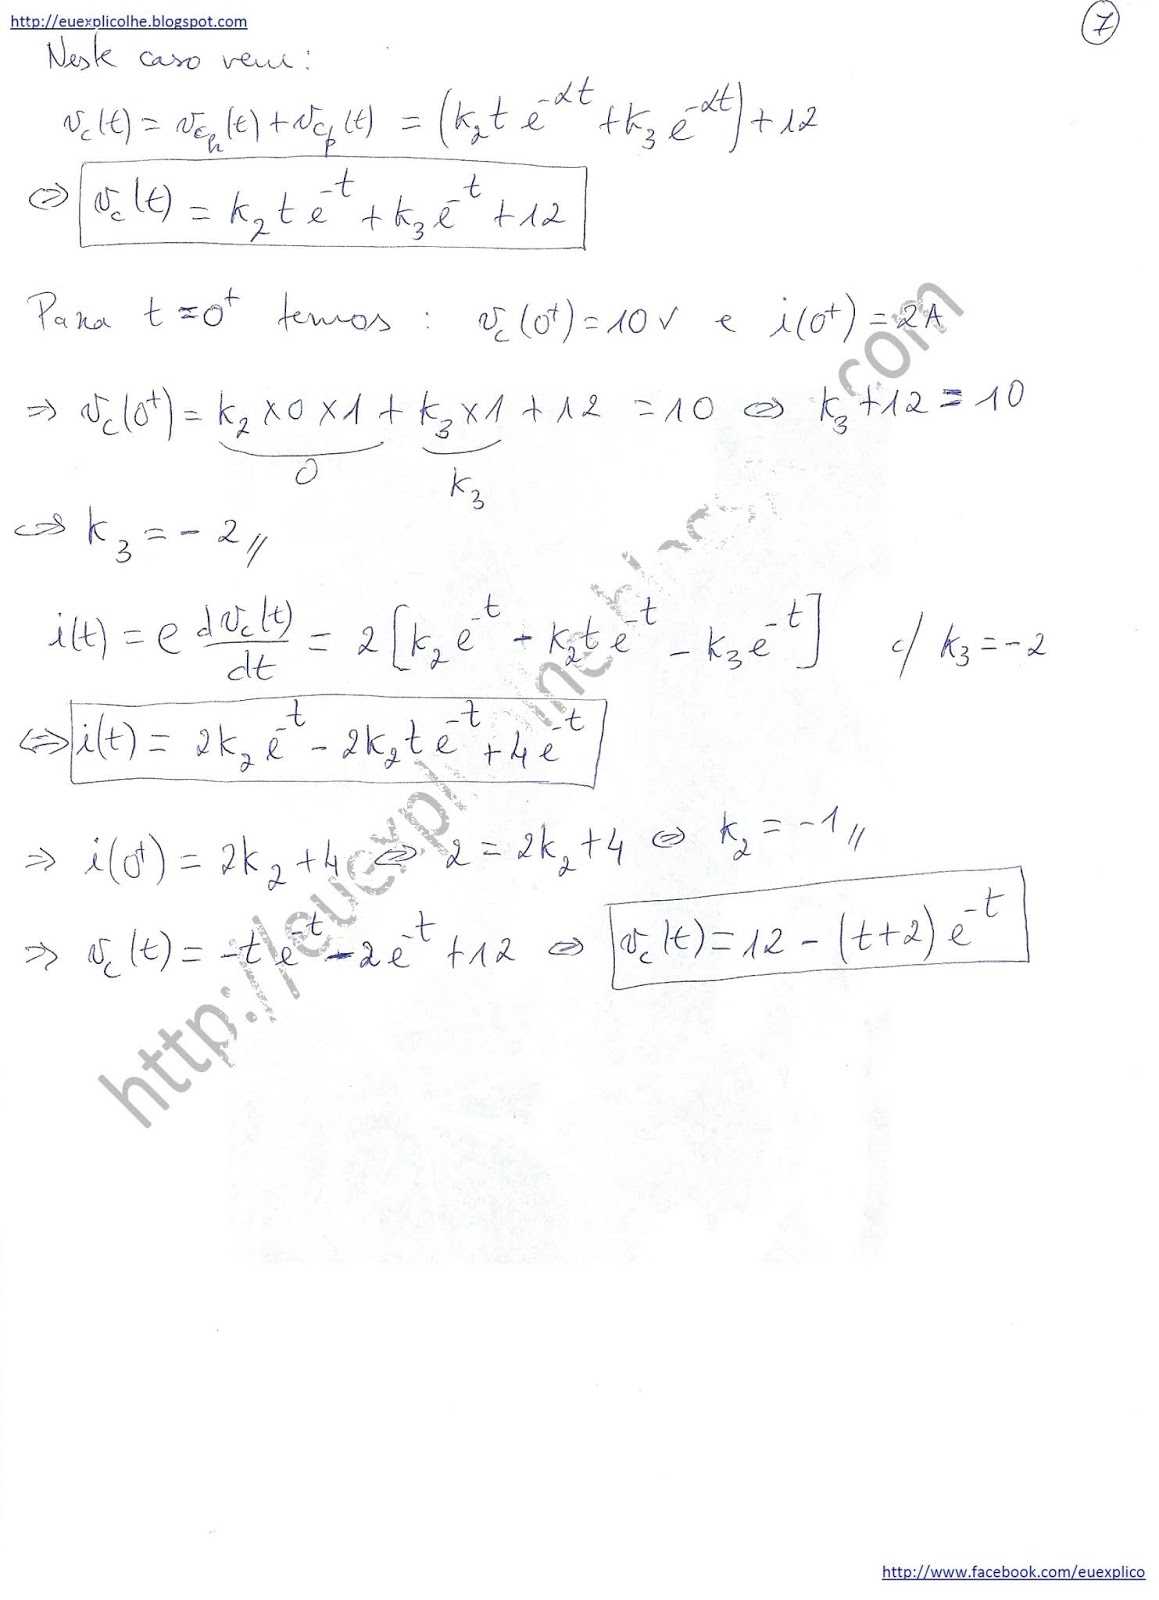 http://euexplicolhe.blogspot.com
7
Neste caso vem:
v_c(t) = v_{c_h}(t) + v_{c_p}(t) = (k_2 t e^{-αt} + k_3 e^{-αt}) + 12
⇔ v_c(t) = k_2 t e^{-t} + k_3 e^{-t} + 12
Para t = 0^+ temos : v_c(0^+) = 10 V e i(0^+) = 2A
⇒ v_c(0^+) = k_2 × 0 × 1 + k_3 × 1 + 12 = 10 ⇔ k_3 + 12 = 10
0 k_3
⇔ k_3 = - 2 //
i(t) = C dv_c(t)/dt = 2 [k_2 e^{-t} - k_2 t e^{-t} - k_3 e^{-t}] c/ k_3 = -2
⇔ i(t) = 2k_2 e^{-t} - 2k_2 t e^{-t} + 4 e^{-t}
⇒ i(0^+) = 2k_2 + 4 ⇔ 2 = 2k_2 + 4 ⇔ k_2 = -1 //
⇒ v_c(t) = -t e^{-t} - 2 e^{-t} + 12 ⇔ v_c(t) = 12 - (t+2) e^{-t}
http://www.facebook.com/euexplico